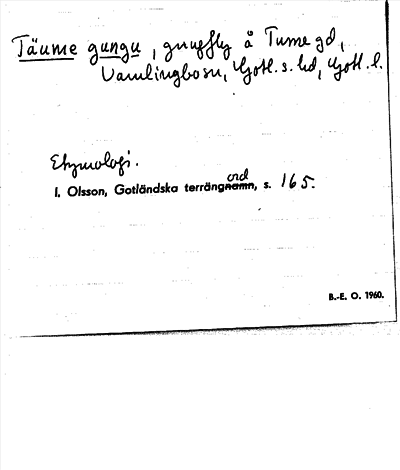 Täume gungu, gnupfly å Tume gd,
Vamlingbo sn, Gotl. s. hd, Gotl. l.
Etymologi.
I. Olsson, Gotländska terrängnamn ord, s. 165.
B.-E. O. 1960.